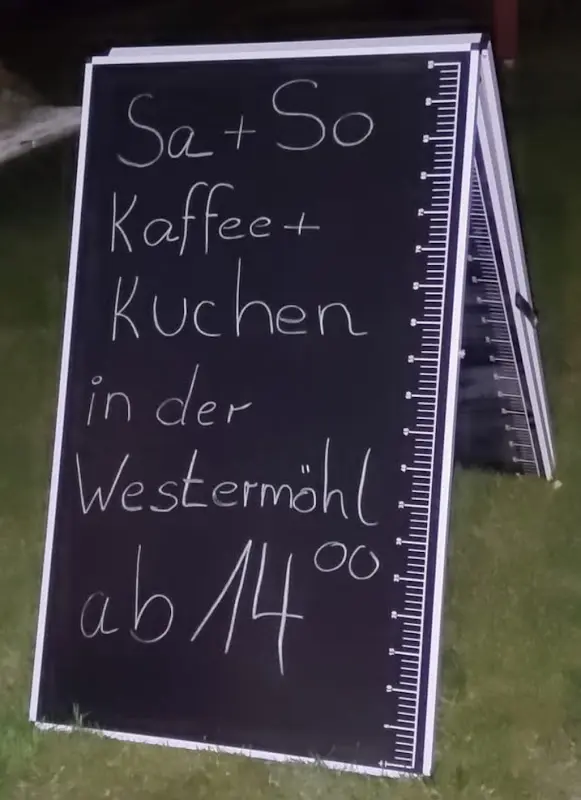 Sa + So
Kaffee +
Kuchen
in der
Westermöhl
ab 14⁰⁰